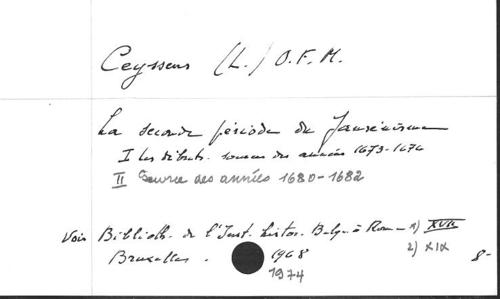 Ceyssens (L.) O.F.M.
La seconde période du Jansénisme
I Les débuts. sources des années 1673-1676
II Source des années 1680-1682
Voir Biblioth. de l'Inst. histor. Belge à Rome 1) XVII
2) XIX
Bruxelles. 1968 8-
1974